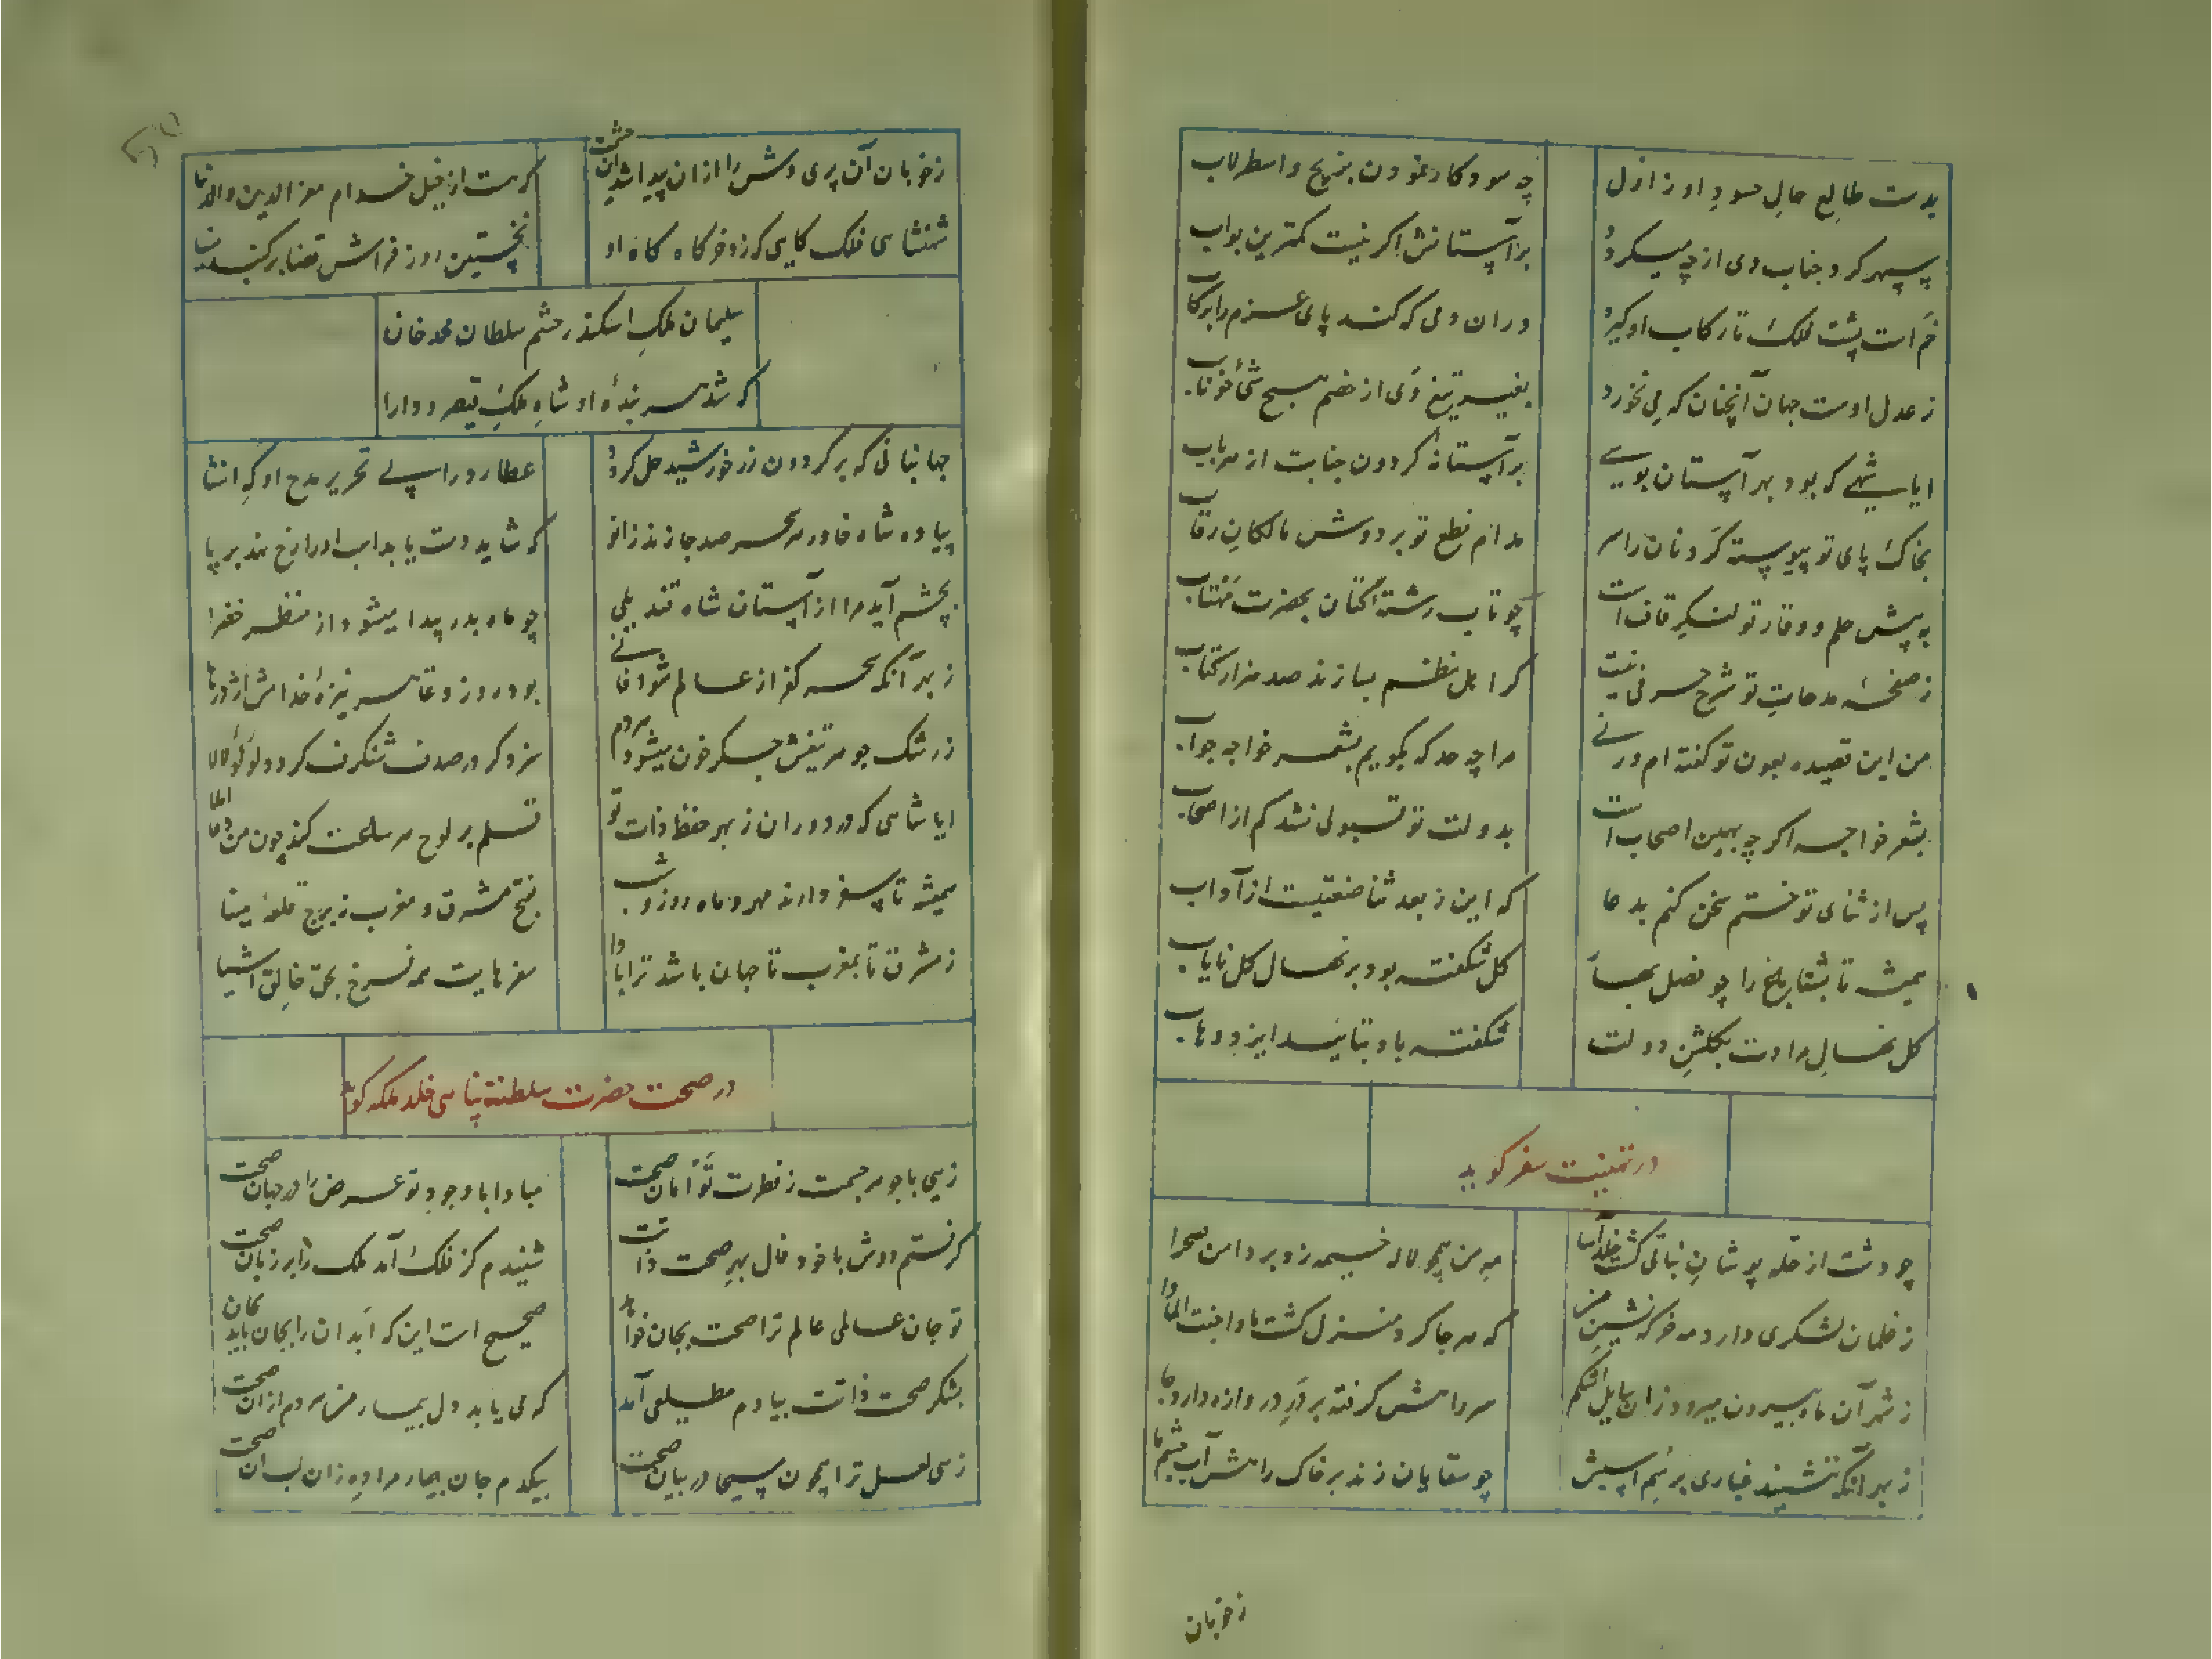 بدست طالع حال حسود او ز ازل
چه سود کار نمودن بزیج و اسطرلاب
سپهر کرد جناب وی از چه میکردد
بر آستانش اکر نیست کمترین بواب
خم است پشت فلک تا رکاب او کیرد
در ان دمی که کند پای عزم را برکاب
ز عدل اوست جهان آنچنان که می نخورد
بغیر تیغ وی از خصم هیچ شی خوناب
ایا شهی که بود بهر آستان بوسی
بر آستانهٔ کردون جنابت از هر باب
بخاک پای تو پیوسته کردنان را سر
مدام نطع تو بر دوش مالکان رقاب
به پیش حلم و وقار تو لنکر قاف است
چو تاب رشتهٔ کتان بحضرت مهتاب
ز صفحهٔ مدحات تو شرح حرفی نیست
کر اهل نظم بسازند صد هزار کتاب
من این قصیده بعون تو کفته ام ورنی
مرا چه حد که بکویم بشعر خواجه جواب
بشعر خواجه اکر چه بهین اصحاب است
بدولت تو قبولی نشد کم از اصحاب
پس از ثنای تو ختم سخن کنم بدعا
که این ز بعد ثنا صنعتیست از آداب
همیشه تا بشتا یخ را چو فصل بهار
کل شکفته بود بر نهال کل نایاب
کل نهال مرادت بکلشن دولت
شکفته باد بتایید ایزد وهاب
در تهنیت سفر کوید
چو دشت از حله پوشان نباتی کشت خلد آسا
مه من همچو لاله خیمه زد بر دامن صحرا
ز غلمان لشکری دارد مه خرکه نشین من
که هر جا کرد منزل کشت ماوا جنت الماوا
ز شهر آن ماه بیرون میرود زان سایل اشکم
سر دامنش کرفته بر در دروازه دارد جا
ز بهر آنکه ننشیند غباری بر سم اسپش
چو سقایان زند بر خاک راهش آب چشم ما
ز خوبان
ز خوبان آن پری وش را از ان پیدا شد این حشمت
که هست از خیل خدام معز الدین والدنیا
شهنشاهی فلک کاهی که زد خرکاه کاه او
نخستین روز فراش قضا بر کنبد مینا
سلیمان ملک اسکندر حشم سلطان محمد خان
که شد هر بندهٔ او شاه ملک قیصر و دارا
جهانبانی که بر کردون زر خورشید حل کردد
عطارد را پی تحریر مدح او که انشا
پیاده شاه خاور هر سحر صد جا زند زانو
که شاید دست یابد اسب او را رخ نهد بر پا
بچشم آید مرا از آستان شاه قندیلی
چو ماه بدر پیدا میشود از منظر خضرا
ز بهر آنکه بحر کفر از عالم شود فانی
بود روز وغا هر نیزهٔ خدامش اژدرها
ز رشک جوهر تیغش جکر خون میشود هر دم
سزد کر در صدف شنکرف کردد لولوی لالا
ایا شاهی که در دوران ز بهر حفظ ذات تو
قلم بر لوح مصلحت کند چون من دعا املا
همیشه تا سفر دارند مهر و ماه روز و شب
بفتح مشرق و مغرب ز برج قلعهٔ مینا
ز مشرق تا بمغرب تا جهان باشد ترا بادا
سفرهایت همه فرخ بحق خالق اشیا
در صحت حضرت سلطنة پناهی خلد ملکه کوید
زهی با جوهر جسمت ز فطرت توامان صحت
مبادا با وجود تو عرض را در جهان صحت
کرفتم دوش با خود فال بهر صحت ذاتت
شنیدم کز فلک آمد ملک را بر زبان صحت
تو جان عالمی عالم ترا صحت بجان خواهد
صحیح است این که ابدان را بجان باید بجان
بشکر صحت ذاتت بیادم مطلعی آمد
که می یابد دل بیمار من هر دم از ان صحت
زهی لعل ترا همچون مسیحا در بیان صحت
بیکدم جان بیمار مرا ده زان لب ان صحت